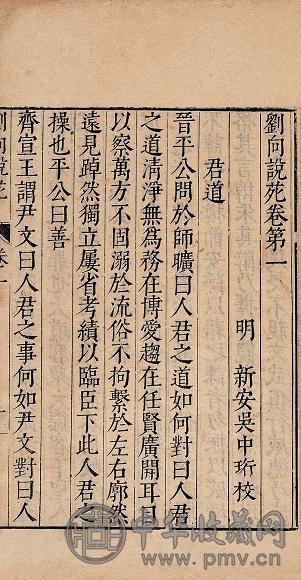 劉向說苑卷第一
明 新安吳中珩校
君道
晉平公問於師曠曰人君之道如何對曰人君
之道清淨無為務在博愛趨在任賢廣開耳目
以察萬方不固溺於流俗不拘繫於左右廓然
遠見踔然獨立屢省考績以臨臣下此人君之
操也平公曰善
齊宣王謂尹文曰人君之事何如尹文對曰人
中华收藏网
www.pmv.cn